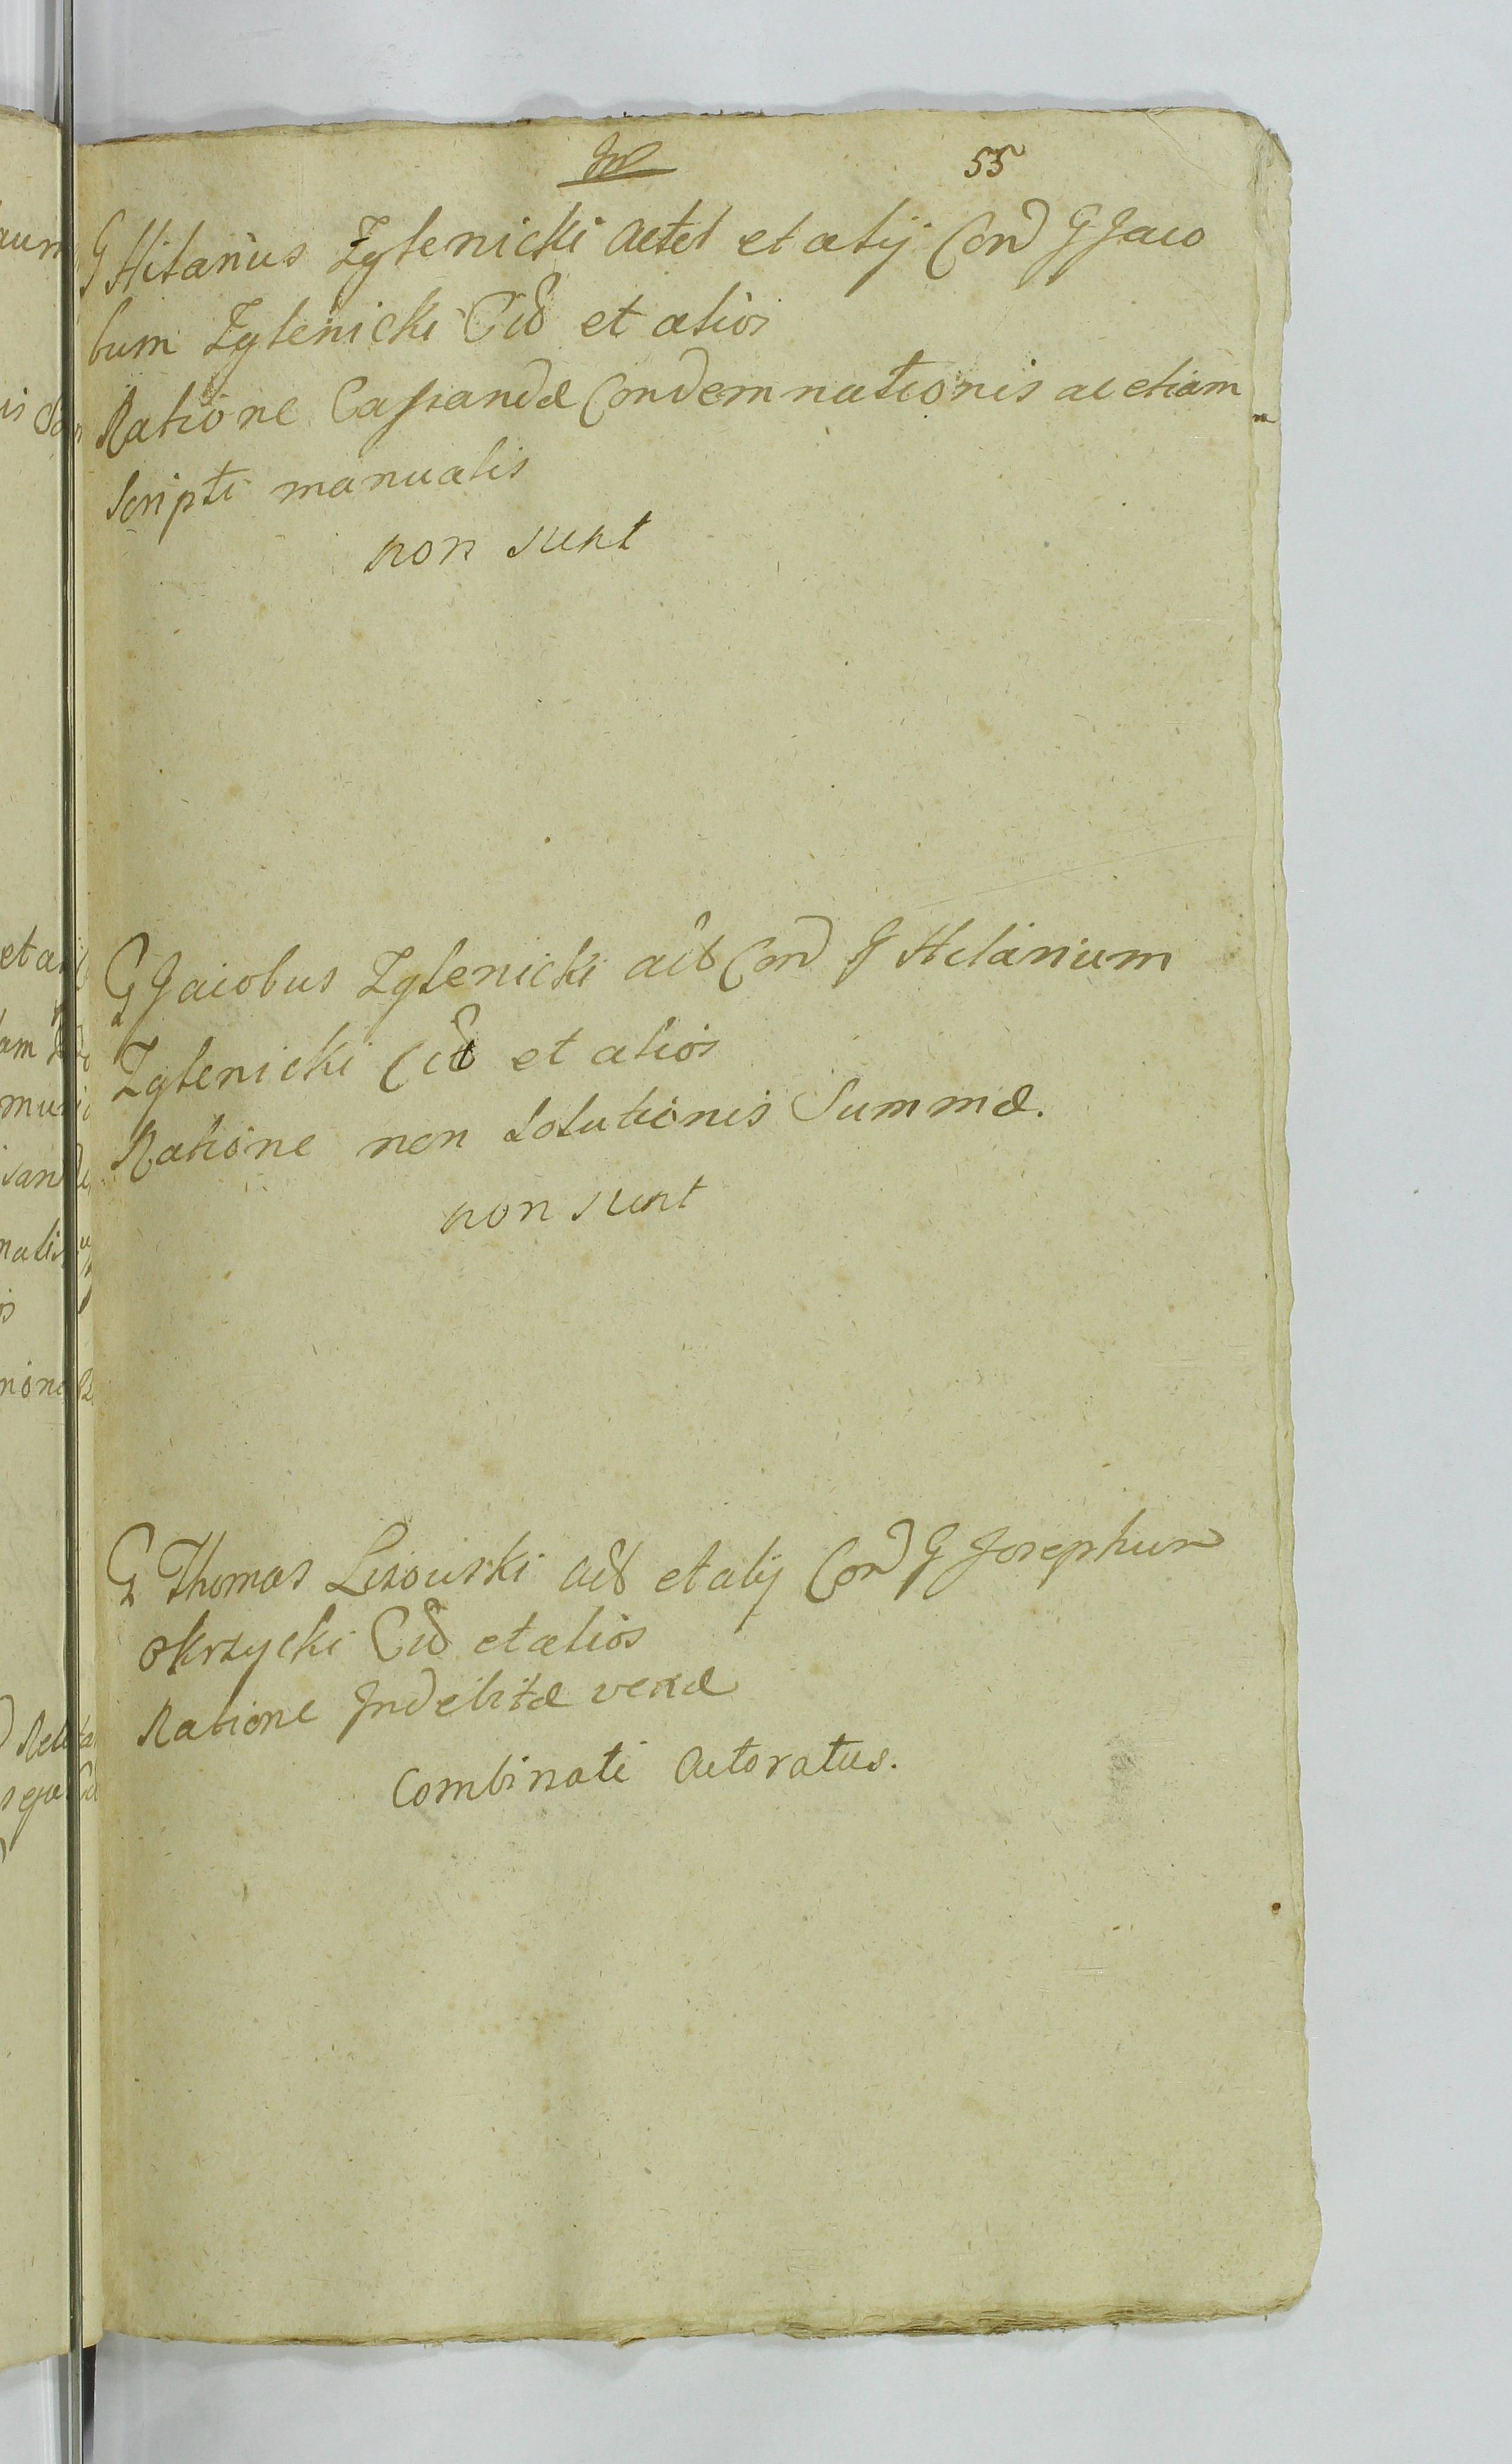 55
G Hilarius Zglenicki Actel et alij Con G Jaco
bum Zglenicki Cit et alios
Ratione Cassandæ Condemnationis ac etiam
Scripti manualis
non sunt
G Jacobus Zglenicki act Con G Hilarium
Zglenicki Cit et alios
Ratione non Solutionis Summæ.
non sunt
G Thomas Lisowski act et alij Con G Josephum
Okrzycki Cit et alios
Ratione Indebitæ
Combinati Actoratus.